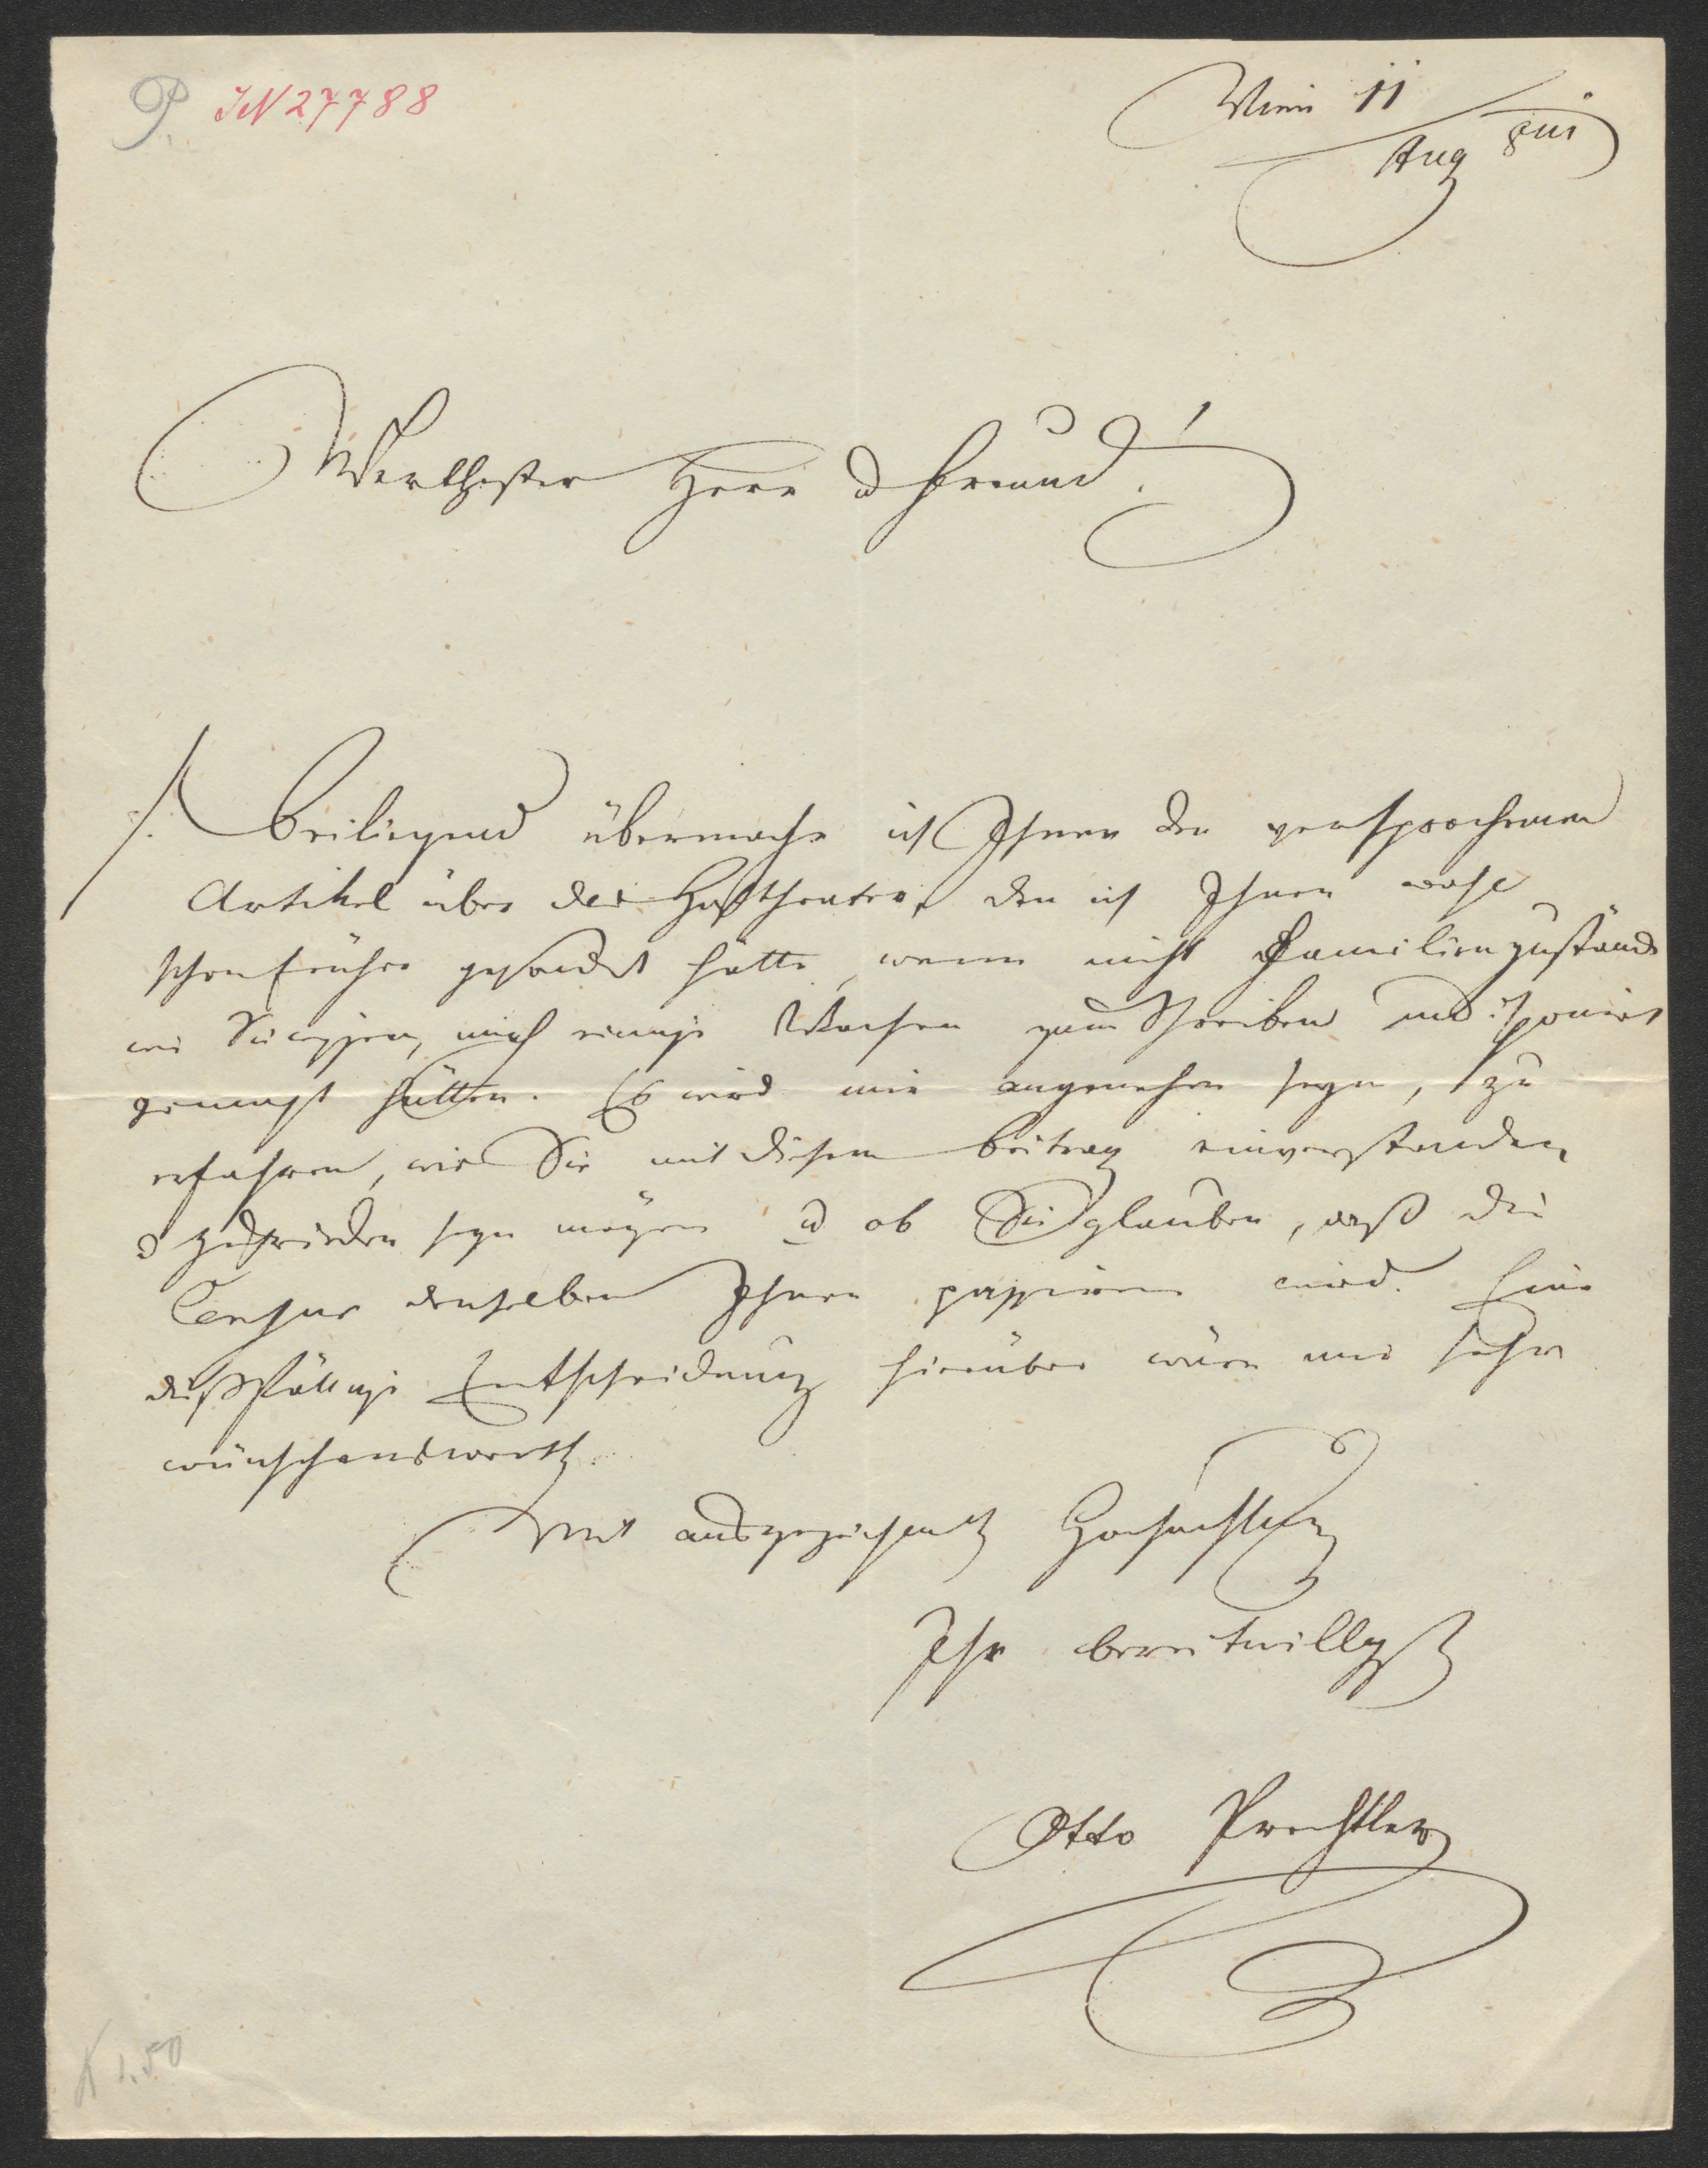 P. IN 27788
Wien 11
Aug
Werthester Herr u Freund!
Beiliegend übermache ich Ihnen den versprochenen
Artikel über das Hoftheater, den ich Ihnen wohl
schon früher gesendet hätte, wenn nicht Familienzustände
mich einige Wochen zum Schreiben indisponirt
gemacht hätten. Es wird mir angenehm seyn, zu
erfahren, wie Sie mit diesem Beitrag einverstanden
u zufrieden seyn mögen u ob Sie glauben, daß die
Censur denselben Ihnen passiren wird. Eine
dießfällige Entscheidung hierüber wäre mir sehr
wünschenswerth.
Mit ausgezeichneter Hochachtung
Ihr bereitwilligster
Otto Prechtler
K 1.50